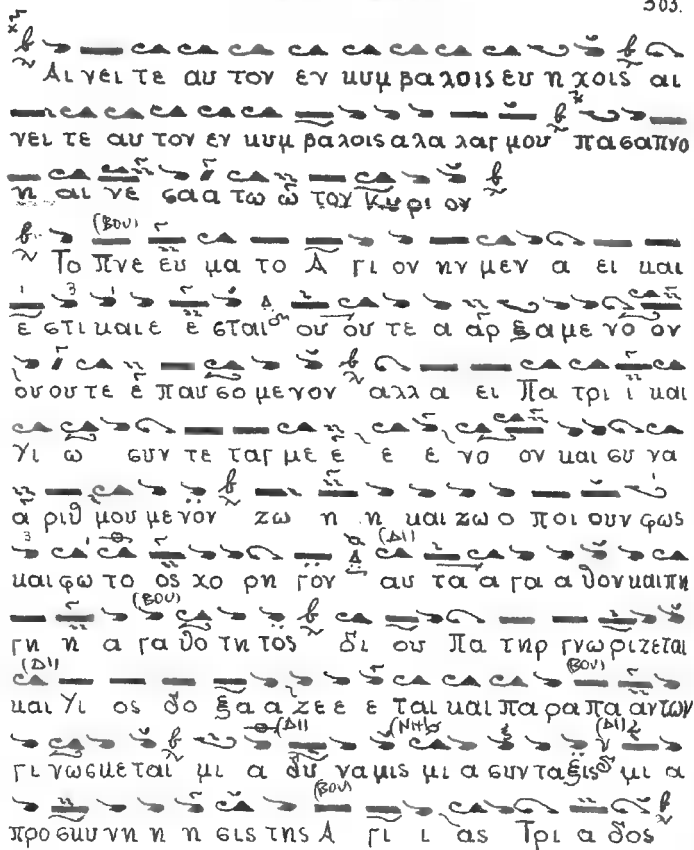 303.
Αι νει τε αυ τον εν κυμ βα λοις ευ η χοις αι
νει τε αυ τον εν κυμ βα λοις α λα λαγ μου πα σα πνο
η αι νε σα α τω ω τον Κυ ρι ον
(ΒΟΥ)
Το πνε ευ μα το Α γι ον ην μεν α ει και
ε στι και ε ε σται ου ου τε α αρ ξα με νο ον
ου ου τε ε παυ σο με νον αλλ α ει Πα τρι ι και
Υι ω συν τε ταγ με ε ε ε νο ον και συ να
α ριθ μου με νον ζω η η και ζω ο ποι ουν φως
(ΔΙ)
και φω το ος χο ρη γον αυ τα α γα α θον και πη
(ΒΟΥ)
γη η α γα θο τη τος δι ου Πα τηρ γνω ρι ζε ται
(ΔΙ) (ΒΟΥ)
και Υι ος δο ξα α ζε ε ε ται και πα ρα πα αν των
(ΔΙ) (ΝΗ) (ΔΙ)
γι νω σκε ται μι α δυ να μις μι α συν τα ξις μι α
(ΒΟΥ)
προ σκυ νη η η σις της Α γι ι ας Τρι α δος